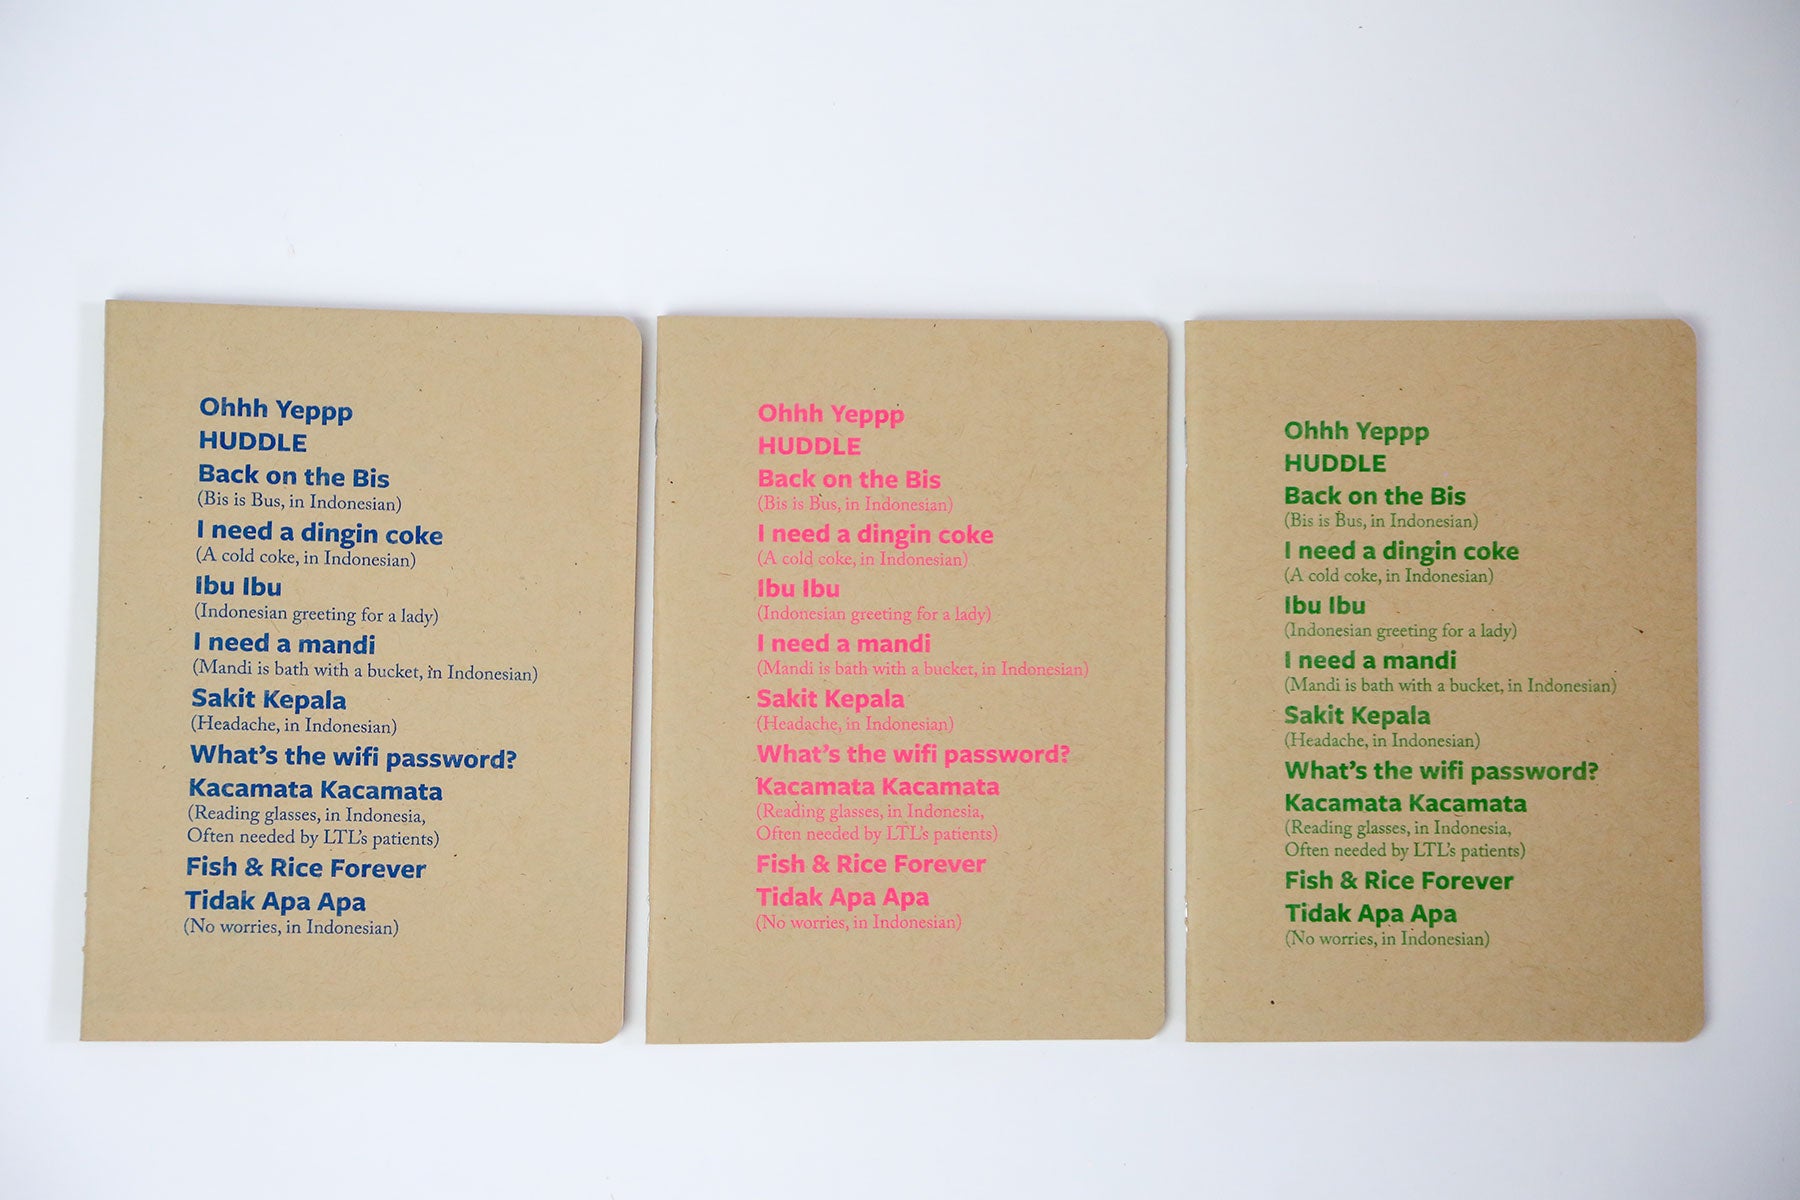 Ohhh Yeppp
HUDDLE
Back on the Bis
(Bis is Bus, in Indonesian)
I need a dingin coke
(A cold coke, in Indonesian)
Ibu Ibu
(Indonesian greeting for a lady)
I need a mandi
(Mandi is bath with a bucket, in Indonesian)
Sakit Kepala
(Headache, in Indonesian)
What's the wifi password?
Kacamata Kacamata
(Reading glasses, in Indonesia,
Often needed by LTL's patients)
Fish & Rice Forever
Tidak Apa Apa
(No worries, in Indonesian)
Ohhh Yeppp
HUDDLE
Back on the Bis
(Bis is Bus, in Indonesian)
I need a dingin coke
(A cold coke, in Indonesian)
Ibu Ibu
(Indonesian greeting for a lady)
I need a mandi
(Mandi is bath with a bucket, in Indonesian)
Sakit Kepala
(Headache, in Indonesian)
What's the wifi password?
Kacamata Kacamata
(Reading glasses, in Indonesia,
Often needed by LTL's patients)
Fish & Rice Forever
Tidak Apa Apa
(No worries, in Indonesian)
Ohhh Yeppp
HUDDLE
Back on the Bis
(Bis is Bus, in Indonesian)
I need a dingin coke
(A cold coke, in Indonesian)
Ibu Ibu
(Indonesian greeting for a lady)
I need a mandi
(Mandi is bath with a bucket, in Indonesian)
Sakit Kepala
(Headache, in Indonesian)
What's the wifi password?
Kacamata Kacamata
(Reading glasses, in Indonesia,
Often needed by LTL's patients)
Fish & Rice Forever
Tidak Apa Apa
(No worries, in Indonesian)